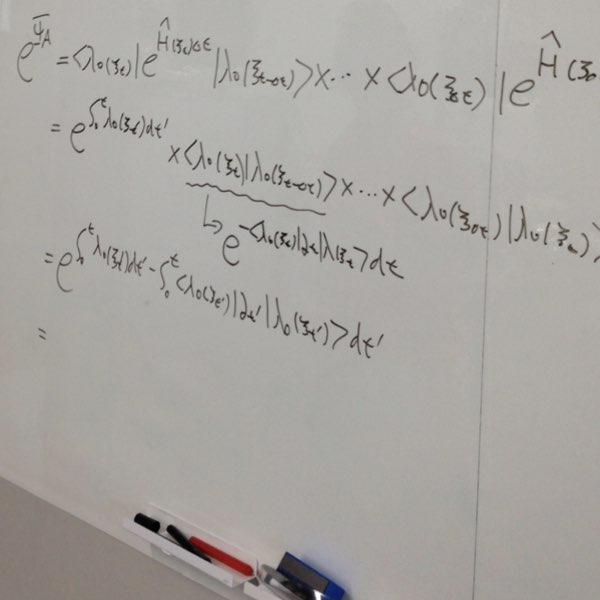 e^{Ψ̄_A} = <λ₀(ξ_t)|e^{Ĥ(ξ_t)δt}|λ₀(ξ_{t-δt})>×⋯×<λ₀(ξ_{δt})|e^{Ĥ(ξ₀
= e^{∫₀^t λ₀(ξ_{t'})dt'} ×<λ₀(ξ_t)|λ₀(ξ_{t-δt})>×⋯×<λ₀(ξ_{δt})|λ₀(ξ₀)>
↳ e^{-<λ₀(ξ_t)|∂_t|λ(ξ_t)>dt}
= e^{∫₀^t λ₀(ξ_{t'})dt' - ∫₀^t <λ₀(ξ_{t'})|∂_{t'}|λ₀(ξ_{t'})>dt'}
=